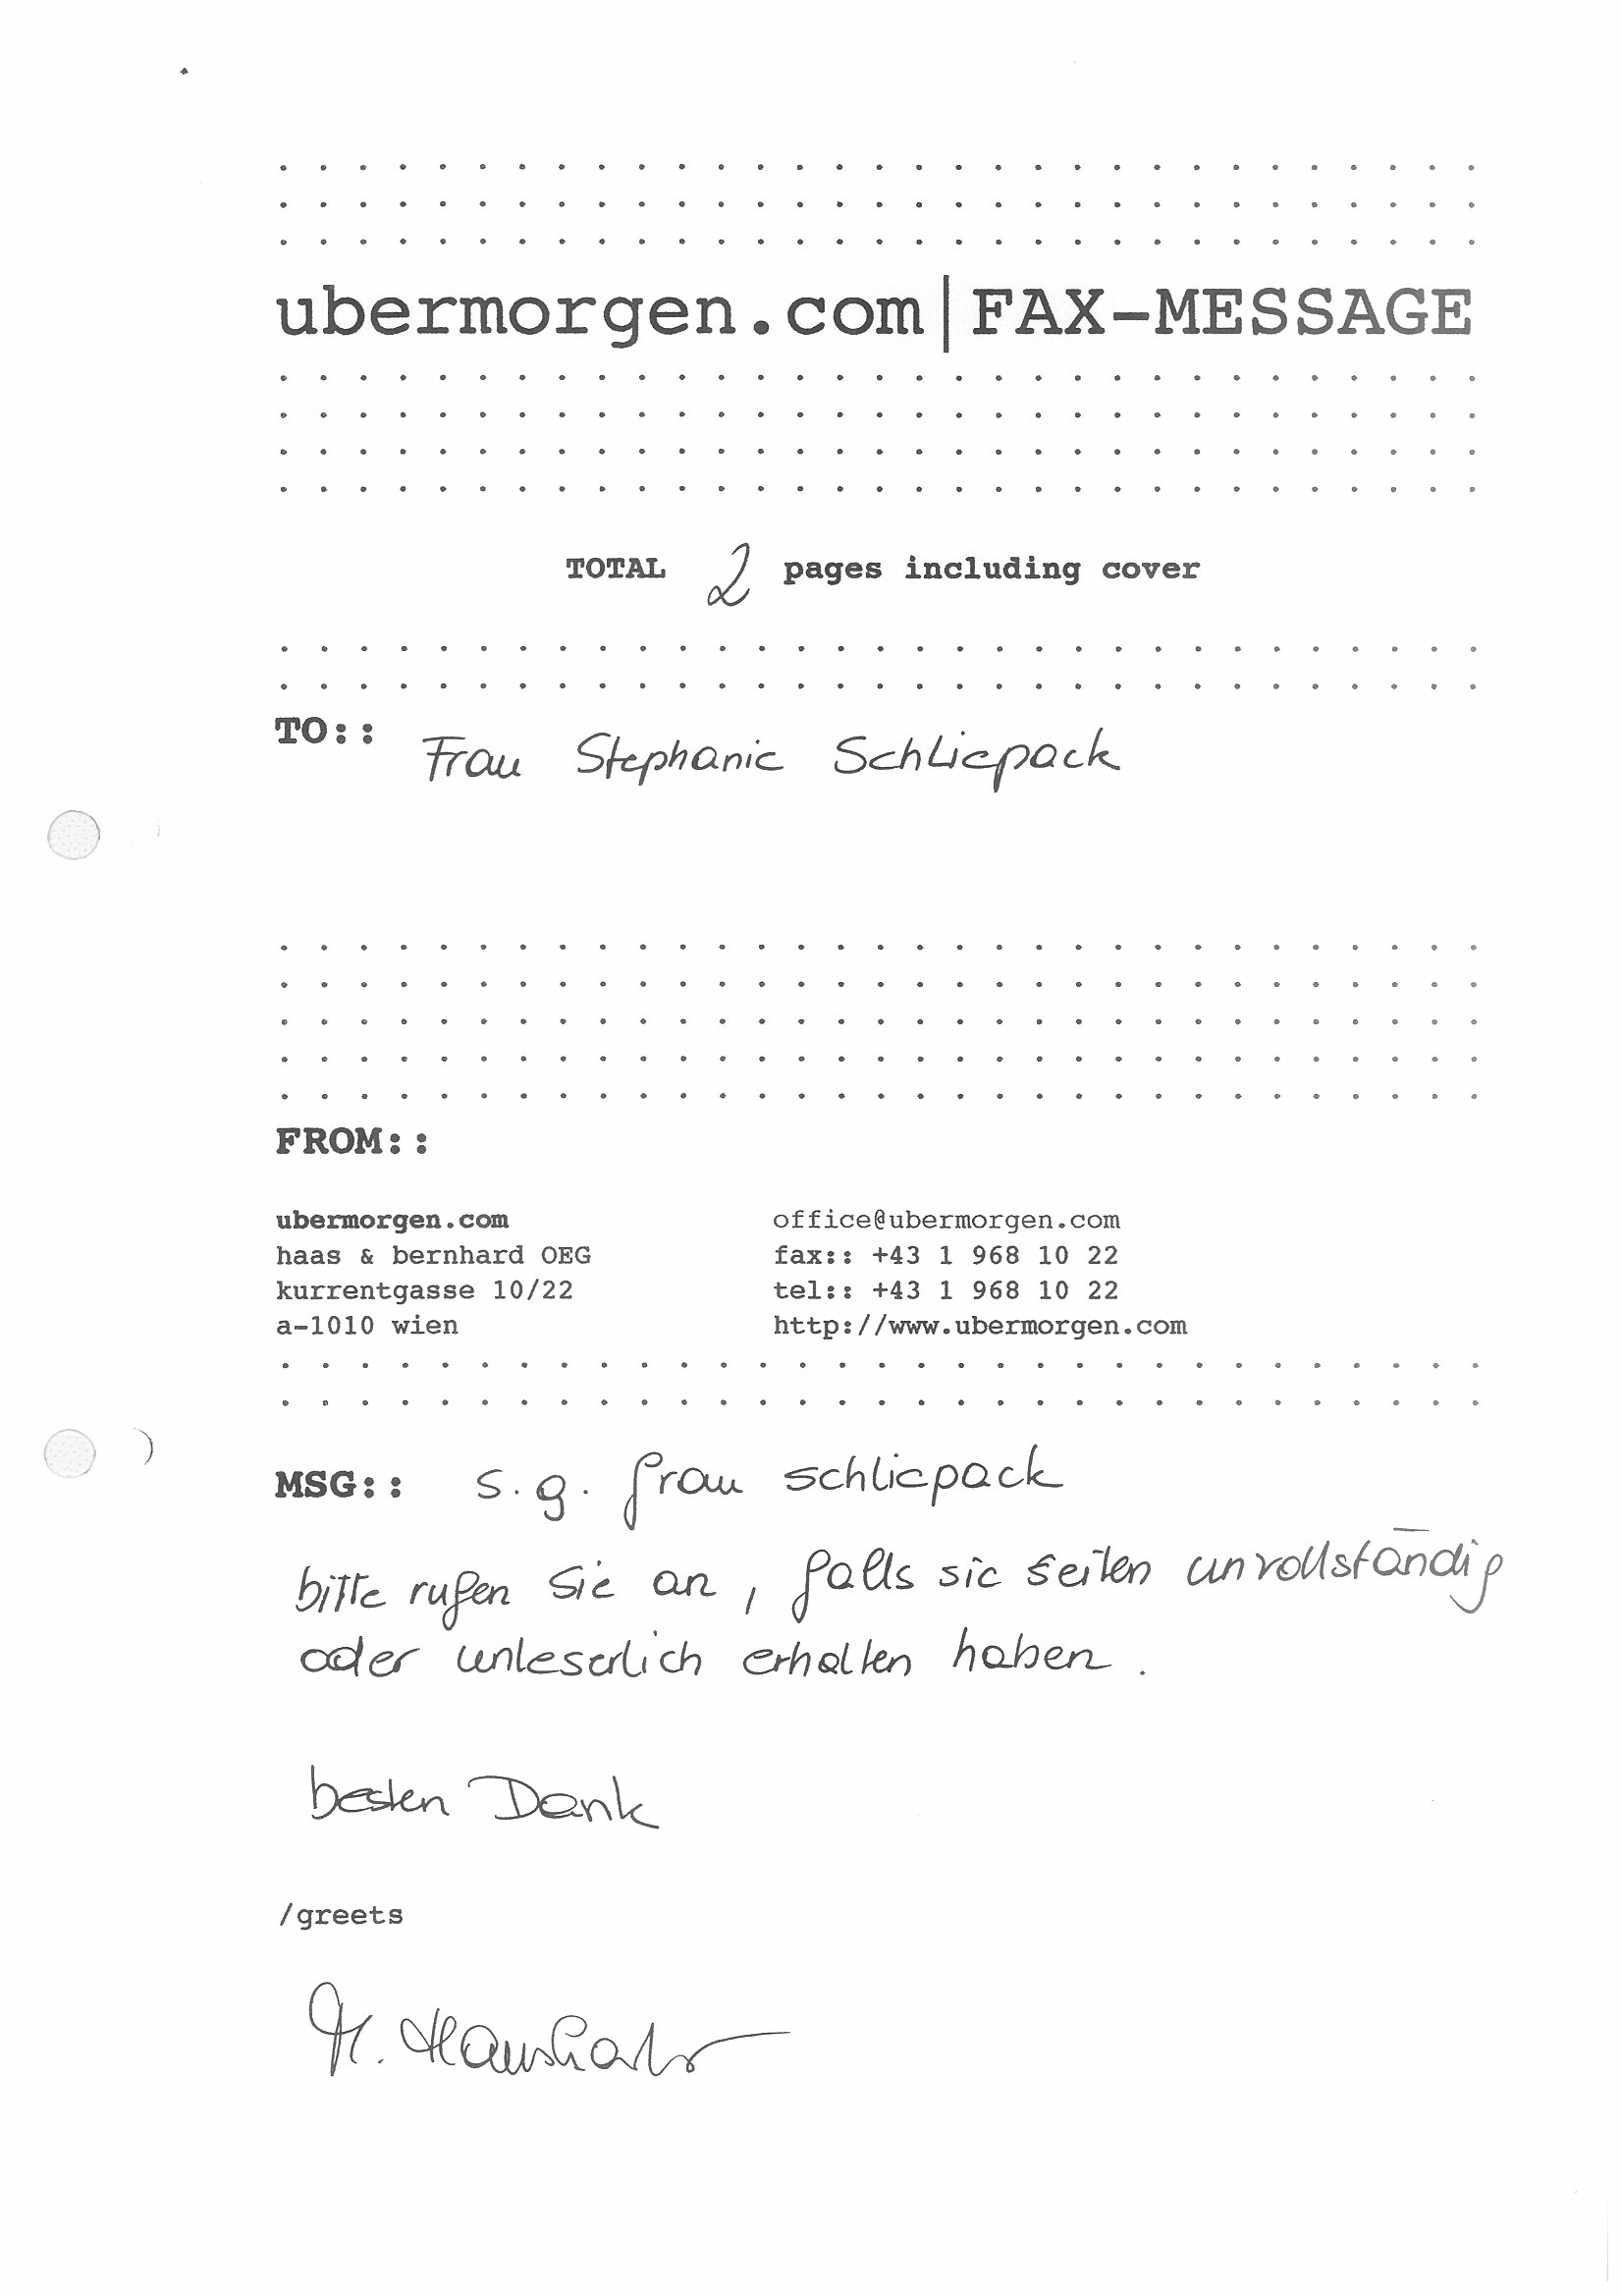 ubermorgen.com|FAX-MESSAGE
TOTAL 2 pages including cover
TO:: Frau Stephanie Schliepack
FROM::
ubermorgen.com office@ubermorgen.com
haas & bernhard OEG fax:: +43 1 968 10 22
kurrentgasse 10/22 tel:: +43 1 968 10 22
a-1010 wien http://www.ubermorgen.com
MSG:: s.g. frau schliepack
bitte rufen sie an, falls sie seiten unvollständig
oder unleserlich erhalten haben.
besten Dank
/greets